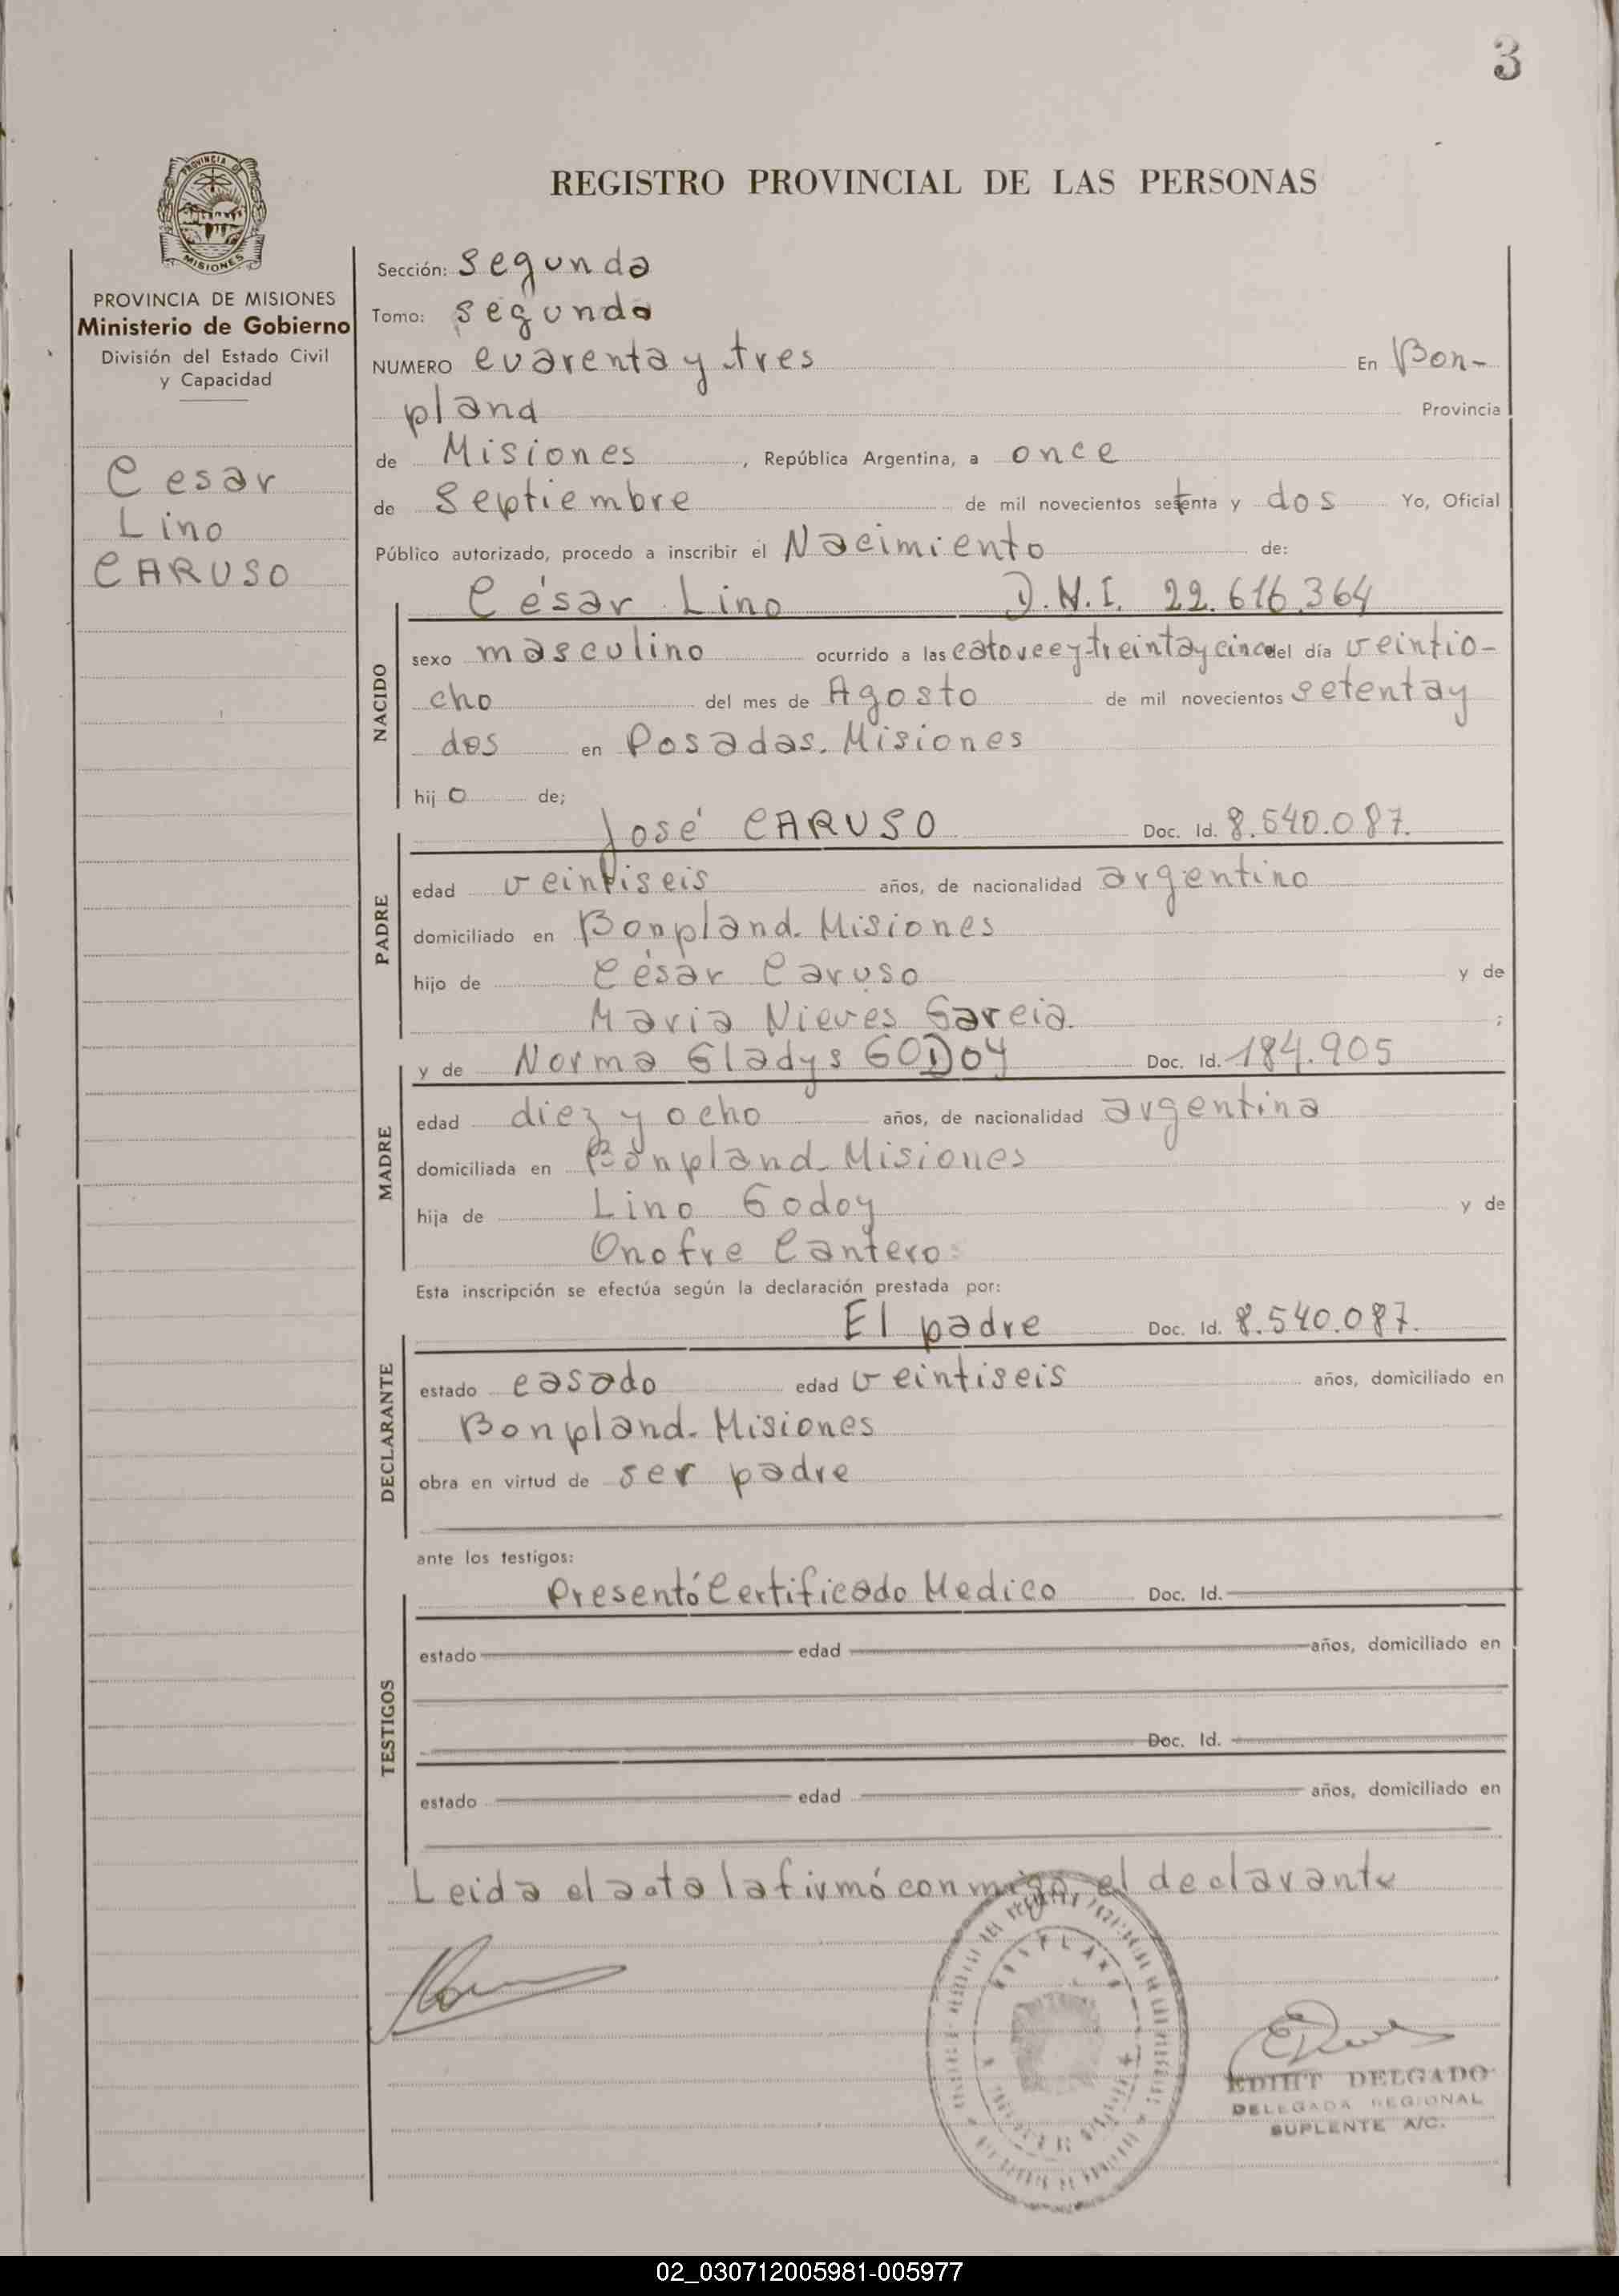 3
REGISTRO PROVINCIAL DE LAS PERSONAS
PROVINCIA DE
MISIONES
PROVINCIA DE MISIONES
Ministerio de Gobierno
División del Estado Civil
y Capacidad
Cesar
Lino
CARUSO
Sección: Segunda
Tomo: segundo
NUMERO cuarenta y tres En Bon-
pland Provincia
de Misiones, República Argentina, a once
de Septiembre de mil novecientos setenta y dos Yo, Oficial
Público autorizado, procedo a inscribir el Nacimiento de:
César Lino D.N.I. 22.616.364
NACIDO
sexo masculino ocurrido a las catorce y treinta y cinco del día veintio-
cho del mes de Agosto de mil novecientos setenta y
dos en Posadas. Misiones
hijo de;
José CARUSO Doc. Id. 8.540.087.
PADRE
edad veintiseis años, de nacionalidad argentino
domiciliado en Bonpland. Misiones
hijo de César Caruso y de
Maria Nieves Garcia. ;
y de Norma Gladys GODOY Doc. Id. 184.905
MADRE
edad diez y ocho años, de nacionalidad argentina
domiciliada en Bonpland. Misiones
hija de Lino Godoy y de
Onofre Cantero
Esta inscripción se efectúa según la declaración prestada por:
El padre Doc. Id. 8.540.087.
DECLARANTE
estado casado edad veintiseis años, domiciliado en
Bonpland. Misiones
obra en virtud de ser padre
ante los testigos:
Presentó Certificado Medico Doc. Id.
TESTIGOS
estado edad años, domiciliado en
Doc. Id.
estado edad años, domiciliado en
Leida el acta la firmó conmigo, el declarante
EDIHT DELGADO
DELEGADA REGIONAL
SUPLENTE A/C.
02_030712005981-005977